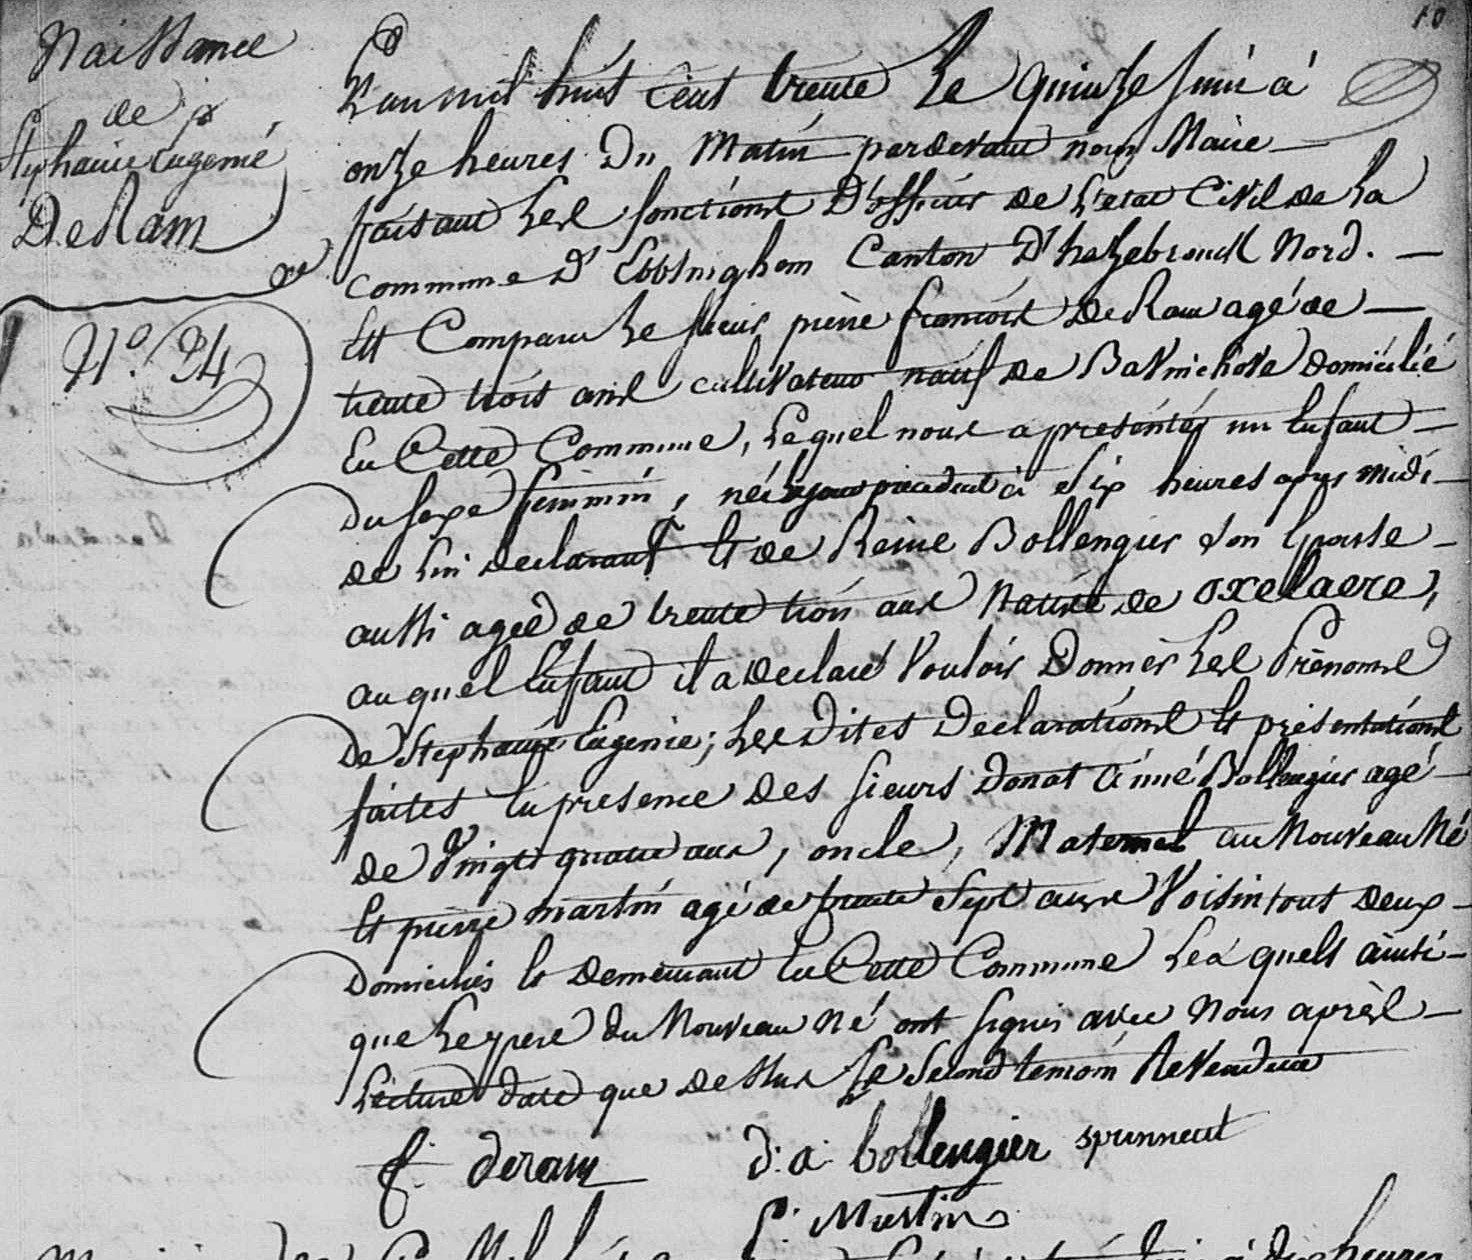 10
Naissance
de
Stephanie Eugenie
DeRam
N.o 34
L'an mil huit Cent trente Le quinze Juin à
onze heures Du Matin pardevant nous Maire
faisant Les fonctions D'officier de L'etat Civil de La
commune D'Ebblinghem Canton D'hazebrouck Nord.
Est Comparu Le sieur pierre francois DeRam agé de
trente trois ans cultivateur natif de Bavinchove domicilié
En Cette Commune, Lequel nous a presentés un Enfant
du sexe feminin, né Le jour precedent à six heures apres midi
de lui declarant Et de Reine Bollengier son Epouse
aussi ageé de trente trois ans Native de oxelaere,
auquel Enfant il a declaré Vouloir Donner Les Prénoms
De Stephanie Eugenie; Les Dites Declarations Et presentations
faites En presence Des sieurs Donat Aimé Bollengier agé
de Vingt quatre ans, oncle, Maternel au Nouveau Né
Et pierre martin agé de trente Sept ans Voisin tout deux
Domiciliés Et demeurant En Cette Commune Les quels ainsi
que Le pere du Nouveau Né ont signés avec Nous après
Lecture date que dessus Le Second temoin
f. deram d. a. bollengier
P. Martin